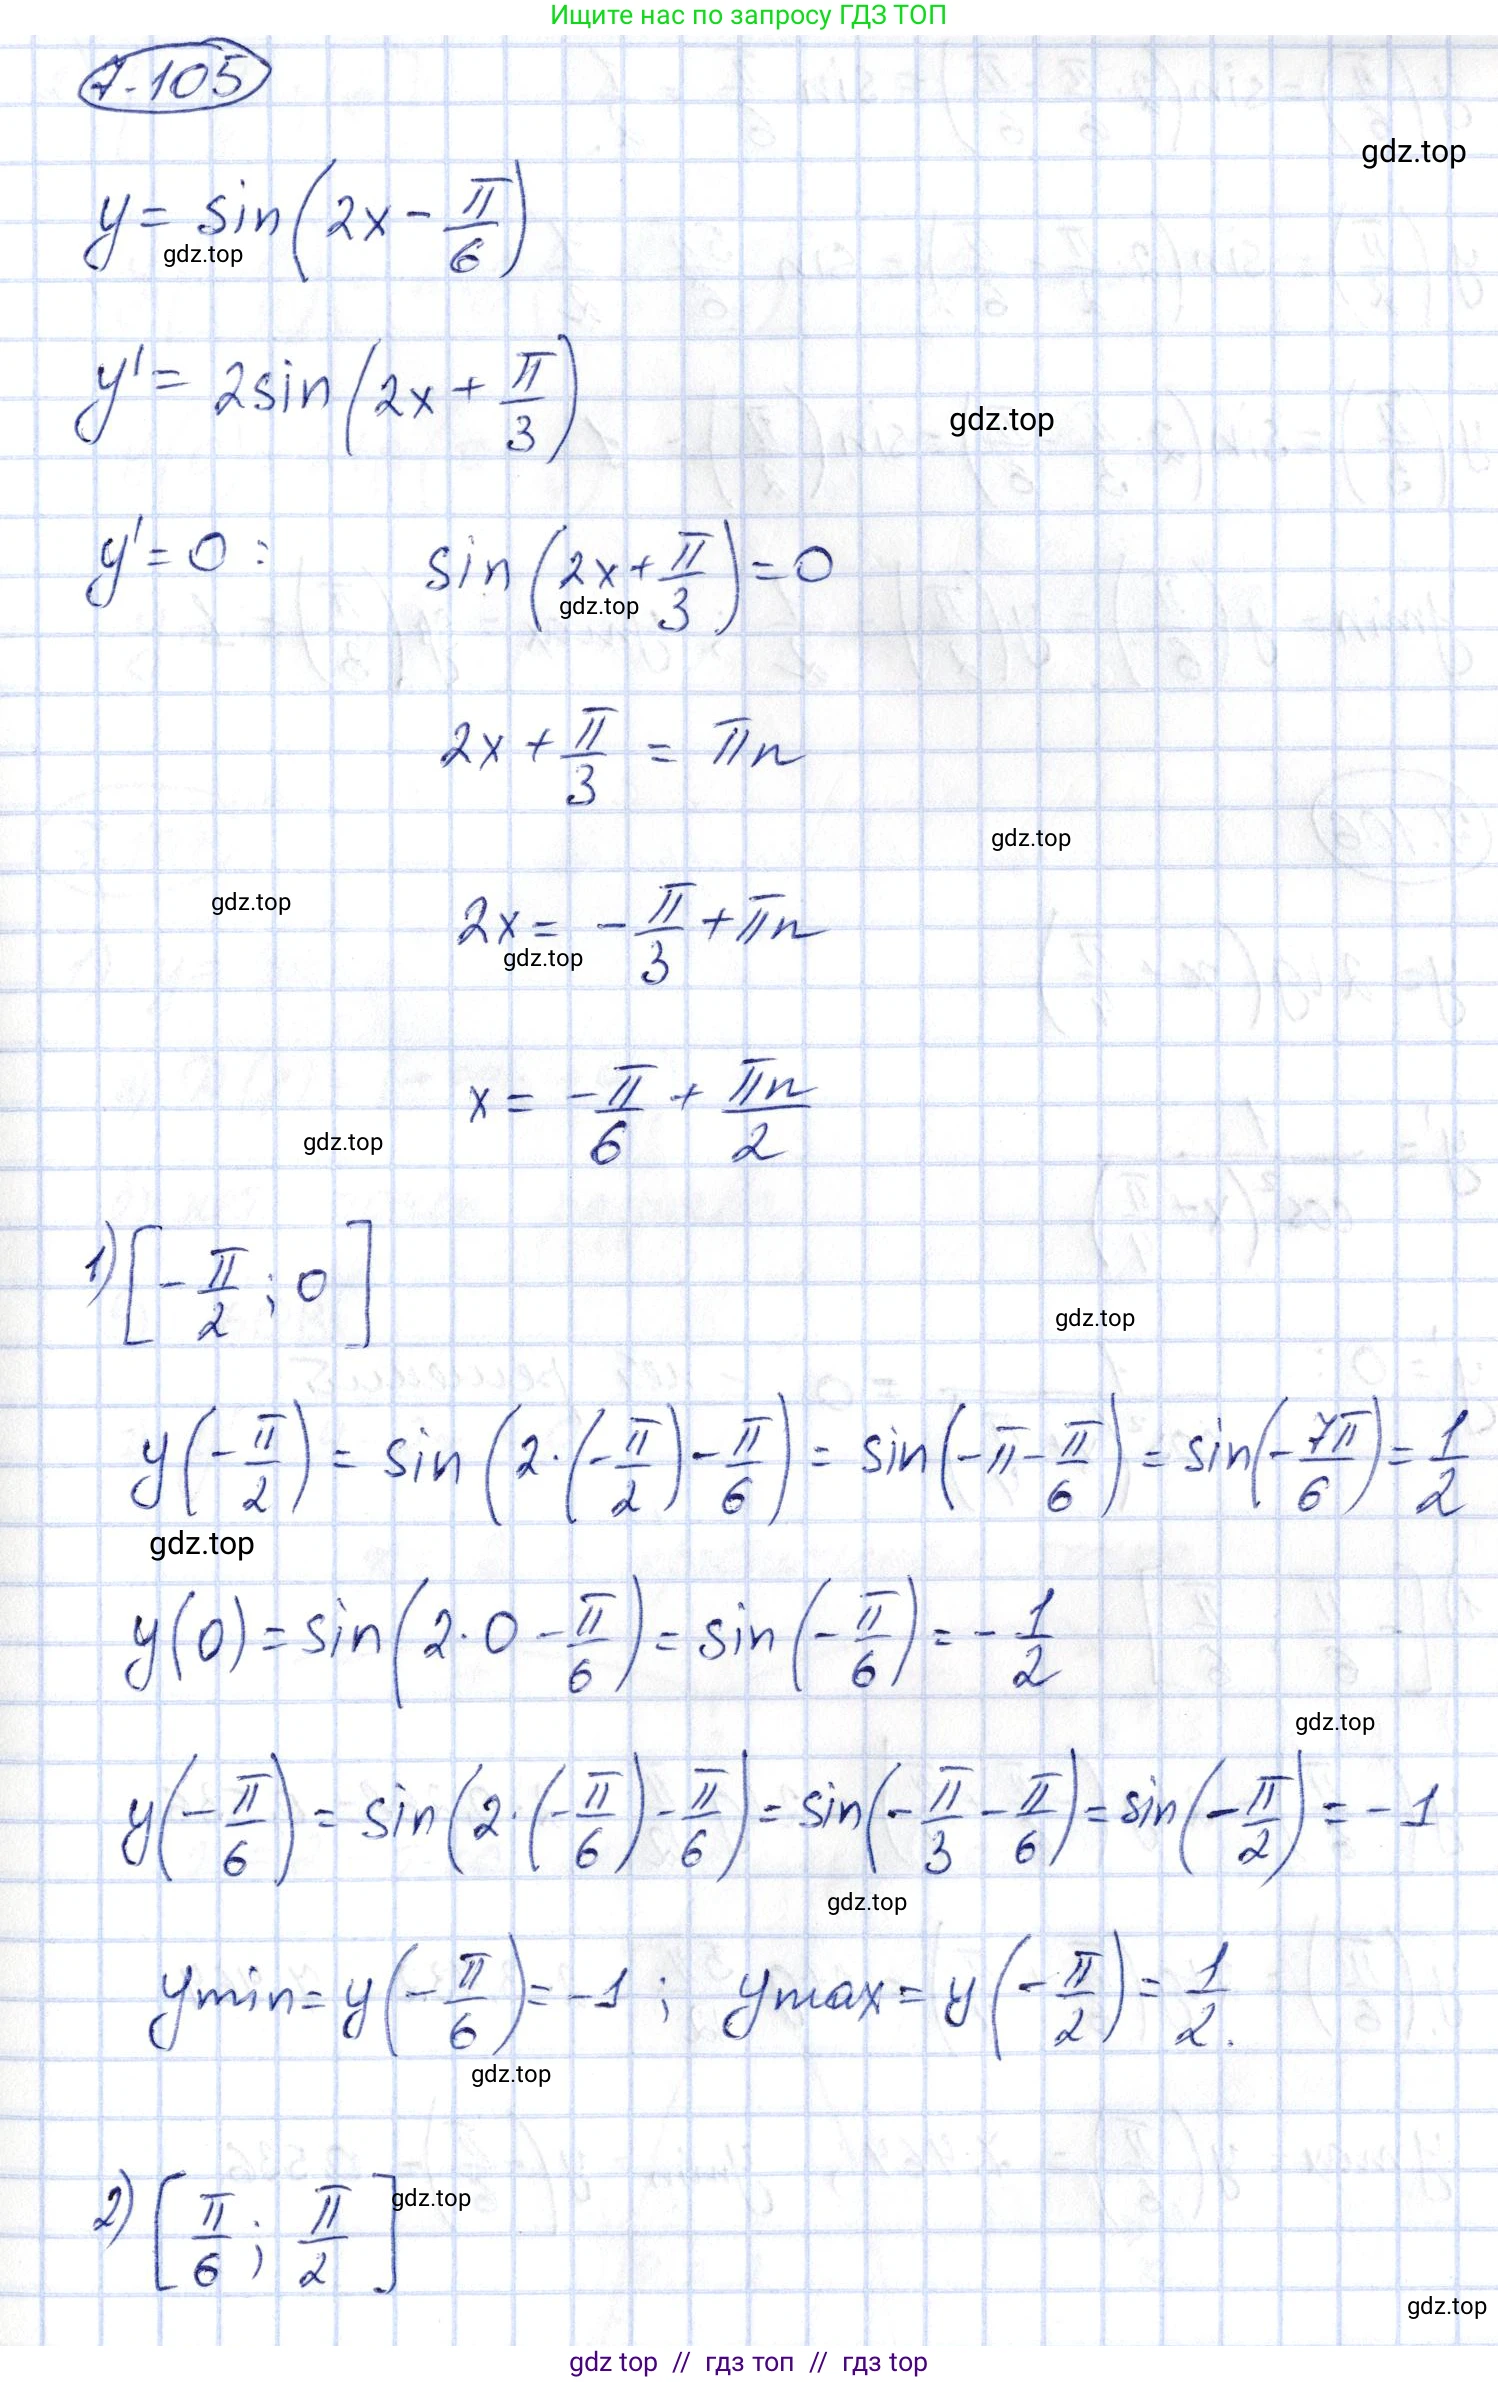 Ищите нас по запросу ГДЗ ТОП
7.105
gdz.top
y = sin(2x - π/6)
gdz.top
y' = 2sin(2x + π/3)
gdz.top
y' = 0 : sin(2x + π/3) = 0
gdz.top
2x + π/3 = πn
gdz.top
gdz.top
2x = -π/3 + πn
gdz.top
x = -π/6 + πn/2
gdz.top
1) [-π/2 ; 0]
gdz.top
y(-π/2) = sin(2·(-π/2) - π/6) = sin(-π - π/6) = sin(-7π/6) = 1/2
gdz.top
y(0) = sin(2·0 - π/6) = sin(-π/6) = -1/2
gdz.top
y(-π/6) = sin(2·(-π/6) - π/6) = sin(-π/3 - π/6) = sin(-π/2) = -1
gdz.top
ymin = y(-π/6) = -1 ; ymax = y(-π/2) = 1/2.
gdz.top
2) [π/6 ; π/2]
gdz.top
gdz.top
gdz top // гдз топ // гдз top